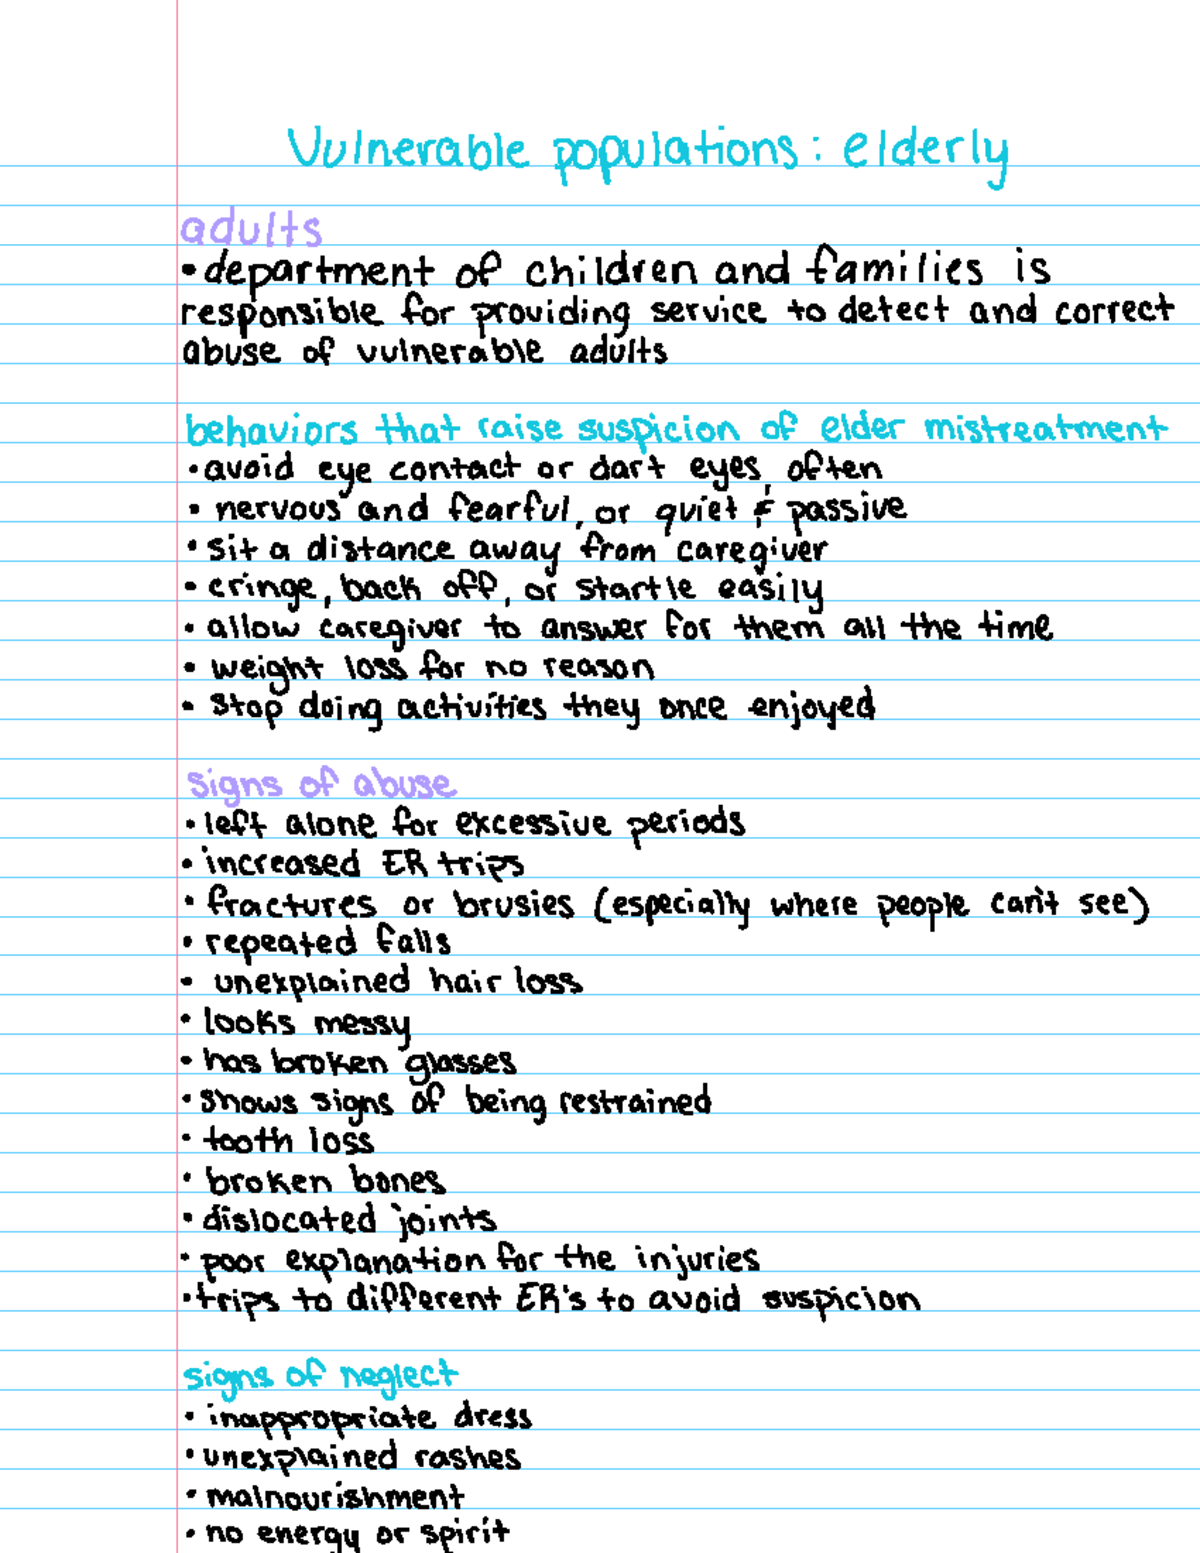 Vulnerable populations: elderly
adults
• department of children and families is
responsible for providing service to detect and correct
abuse of vulnerable adults
behaviors that raise suspicion of elder mistreatment
• avoid eye contact or dart eyes often
• nervous and fearful, or quiet & passive
• sit a distance away from caregiver
• cringe, back off, or startle easily
• allow caregiver to answer for them all the time
• weight loss for no reason
• stop doing activities they once enjoyed
signs of abuse
• left alone for excessive periods
• increased ER trips
• fractures or brusies (especially where people can't see)
• repeated falls
• unexplained hair loss
• looks messy
• has broken glasses
• shows signs of being restrained
• tooth loss
• broken bones
• dislocated joints
• poor explanation for the injuries
• trips to different ER's to avoid suspicion
signs of neglect
• inappropriate dress
• unexplained rashes
• malnourishment
• no energy or spirit